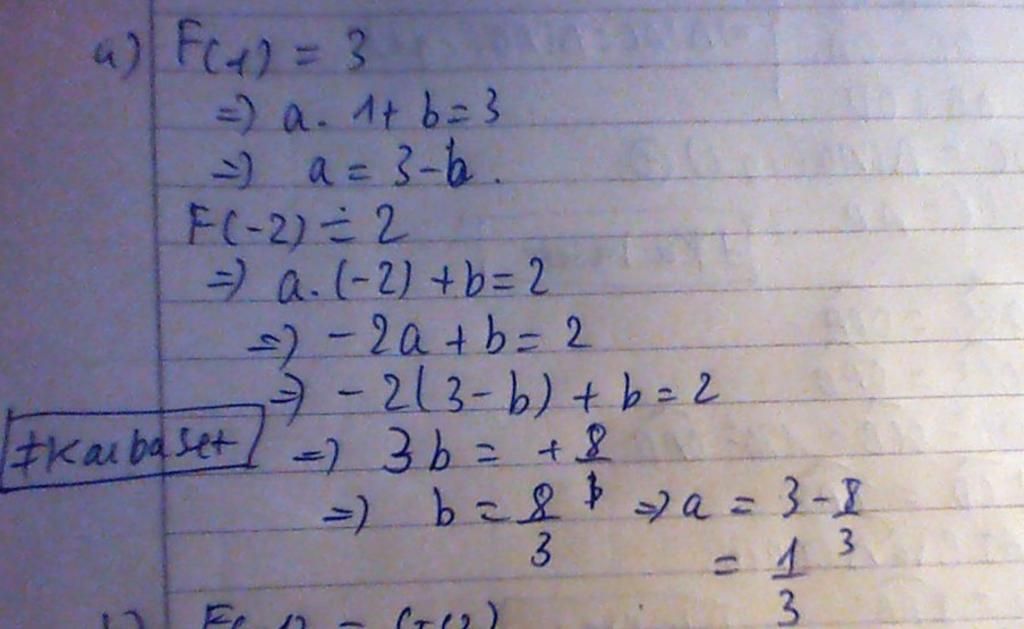 a) F(1) = 3
=) a. 1 + b = 3
=) a = 3 - b.
F(-2) = 2
=) a. (-2) + b = 2
=) - 2a + b = 2
=) - 2(3 - b) + b = 2
#Kaibaset =) 3b = + 8
=) b = 8/3 => a = 3 - 8/3
= 1/3